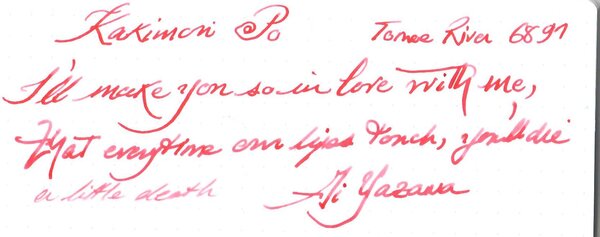 Kakimori Po Tomoe River 68gr
I'll make you so in love with me,
that everytime our lips touch, you'll die
a little death Ai Yazawa